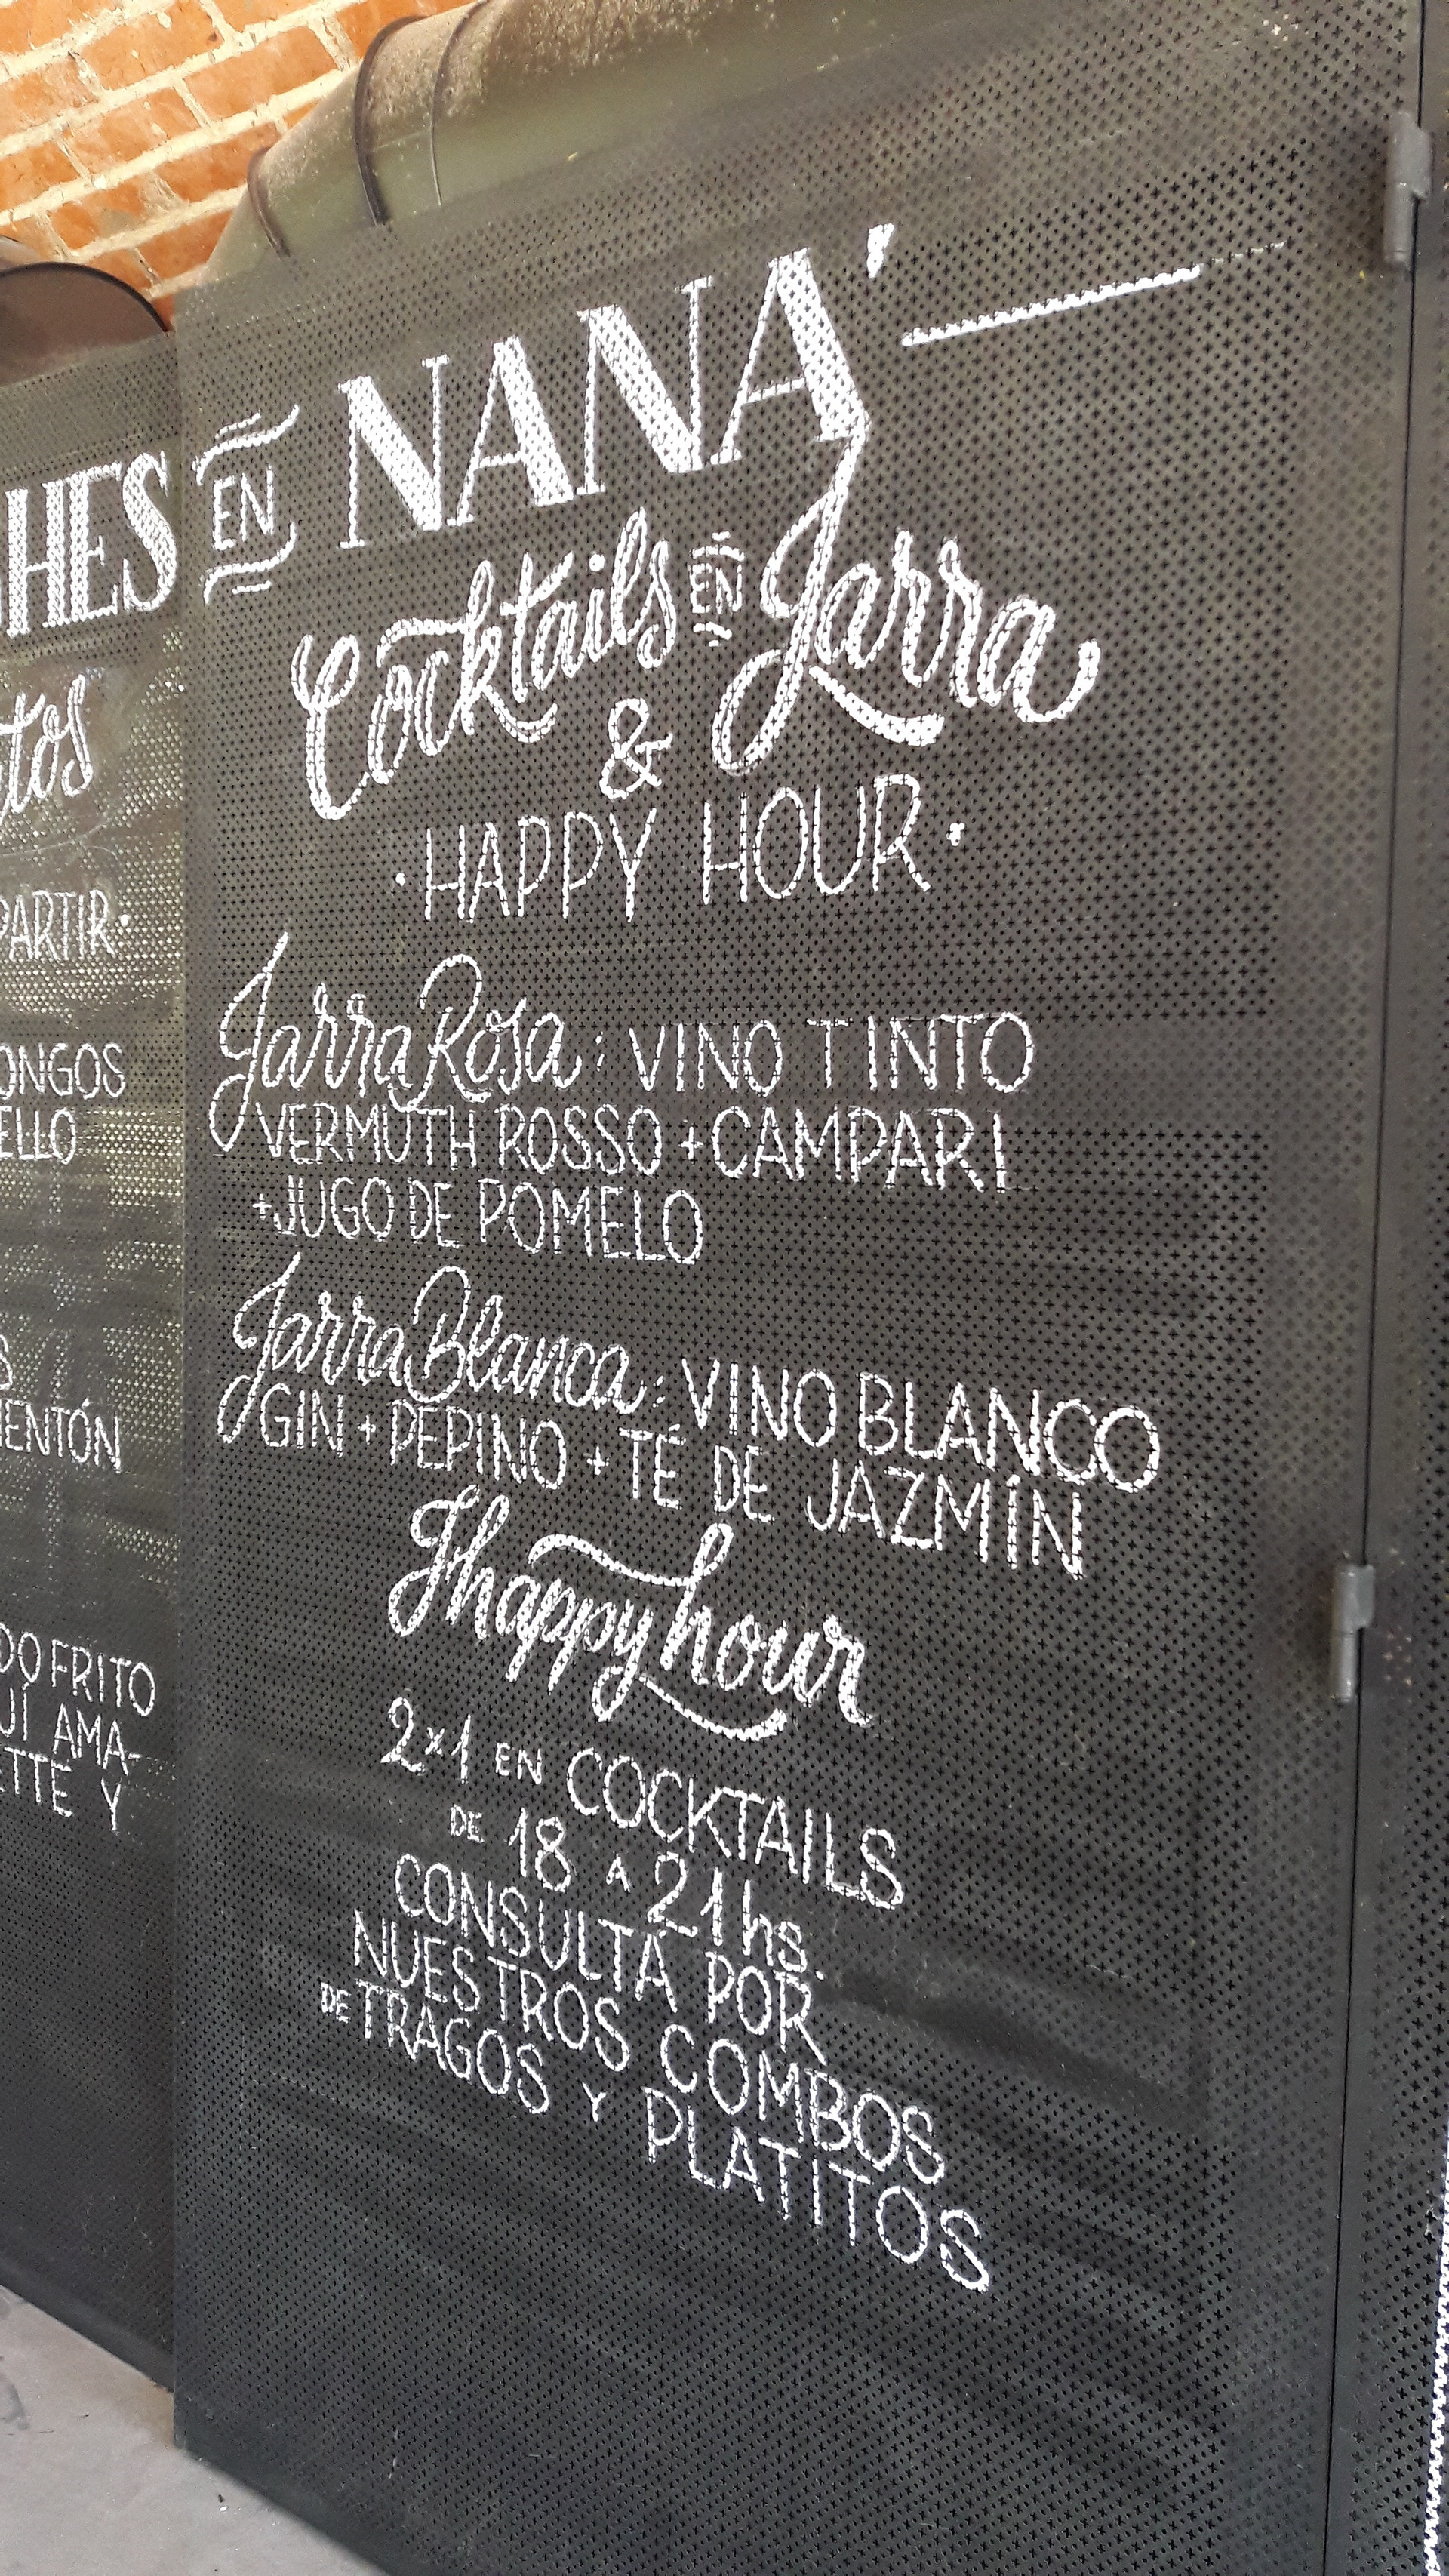 EN NANÁ
Cocktails EN Jarra
&
· HAPPY HOUR ·
Jarra Rosa: VINO TINTO
VERMUTH ROSSO + CAMPARI
+ JUGO DE POMELO
Jarra Blanca: VINO BLANCO
GIN + PEPINO + TÉ DE JAZMÍN
Hhappy hour
2x1 EN COCKTAILS
DE 18 A 21 hs.
CONSULTÁ POR
NUESTROS COMBOS
DE TRAGOS Y PLATITOS
HES
tos
PARTIR ·
ONGOS
ELLO
S
IENTÓN
DO FRITO
UÍ AMA-
ETTE Y